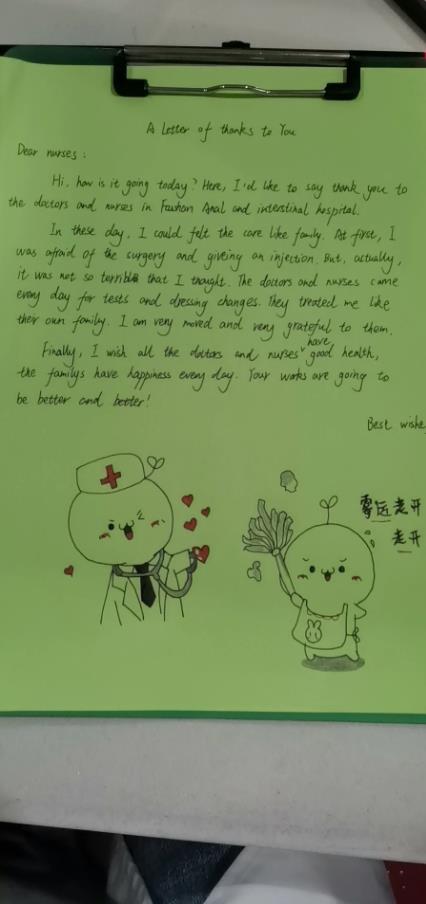 A Letter of thanks to You
Dear nurses:
Hi, how is it going today? Here, I'd like to say thank you to
the doctors and nurses in Foshan Anal and interstinal hospital.
In these day, I could felt the care like family. At first, I
was afraid of the surgery and giveing an injection. But, actually,
it was not so terrible that I thought. The doctors and nurses came
every day for tests and dressing changes. They treated me like
their own family. I am very moved and very grateful to them.
Finally, I wish all the doctors and nurses have good health,
the familys have happiness every day. Your works are going to
be better and better!
Best wishe
霉运走开
走开